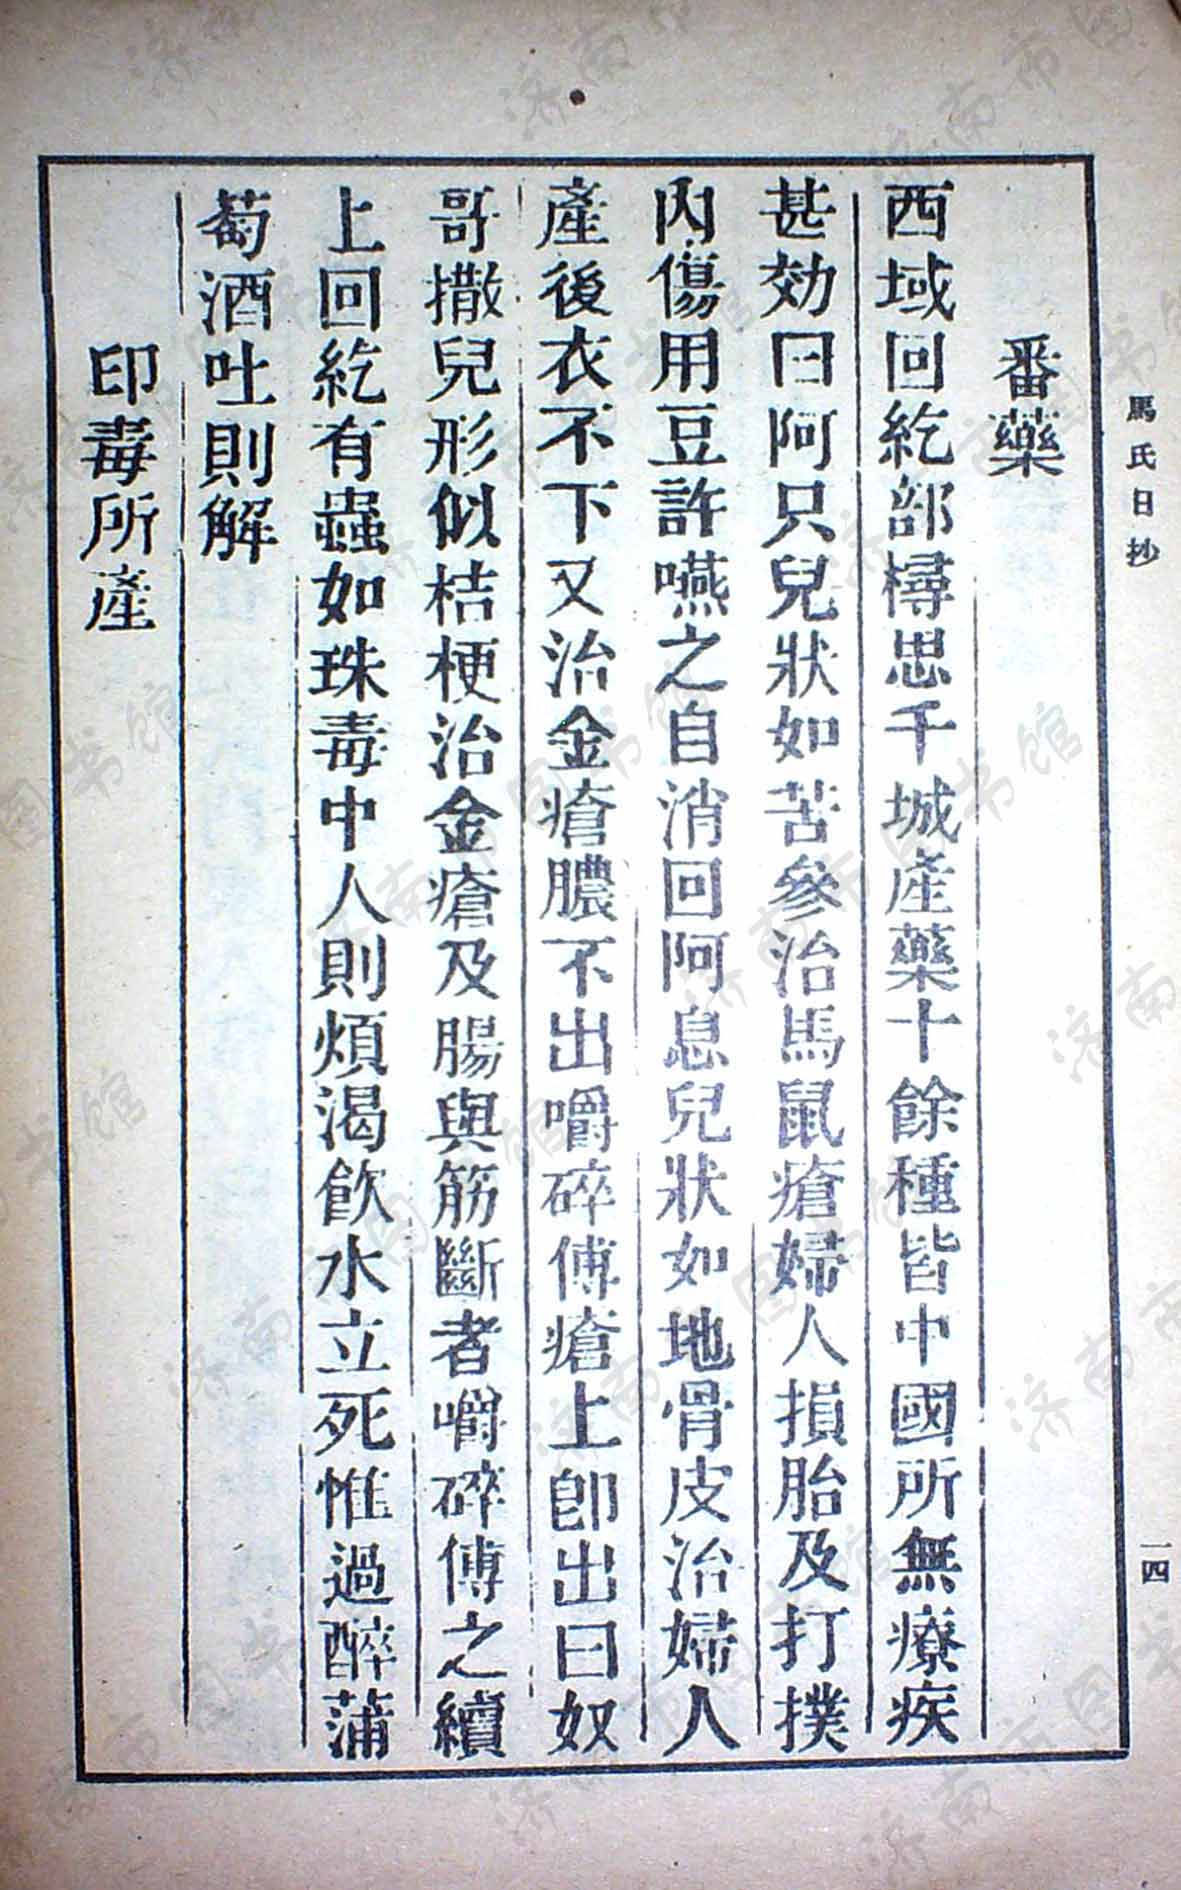 馬氏日抄
一四
番藥
西域回紇部樳思千城產藥十餘種皆中國所無療疾
甚効曰阿只兒狀如苦參治馬鼠瘡婦人損胎及打撲
內傷用豆許嚥之自消回阿息兒狀如地骨皮治婦人
產後衣不下又治金瘡膿不出嚼碎傅瘡上卽出曰奴
哥撒兒形似桔梗治金瘡及腸與筋斷者嚼碎傅之續
上回紇有蟲如珠毒中人則煩渴飮水立死惟過醉蒲
萄酒吐則解
印毒所產
济南市图书馆